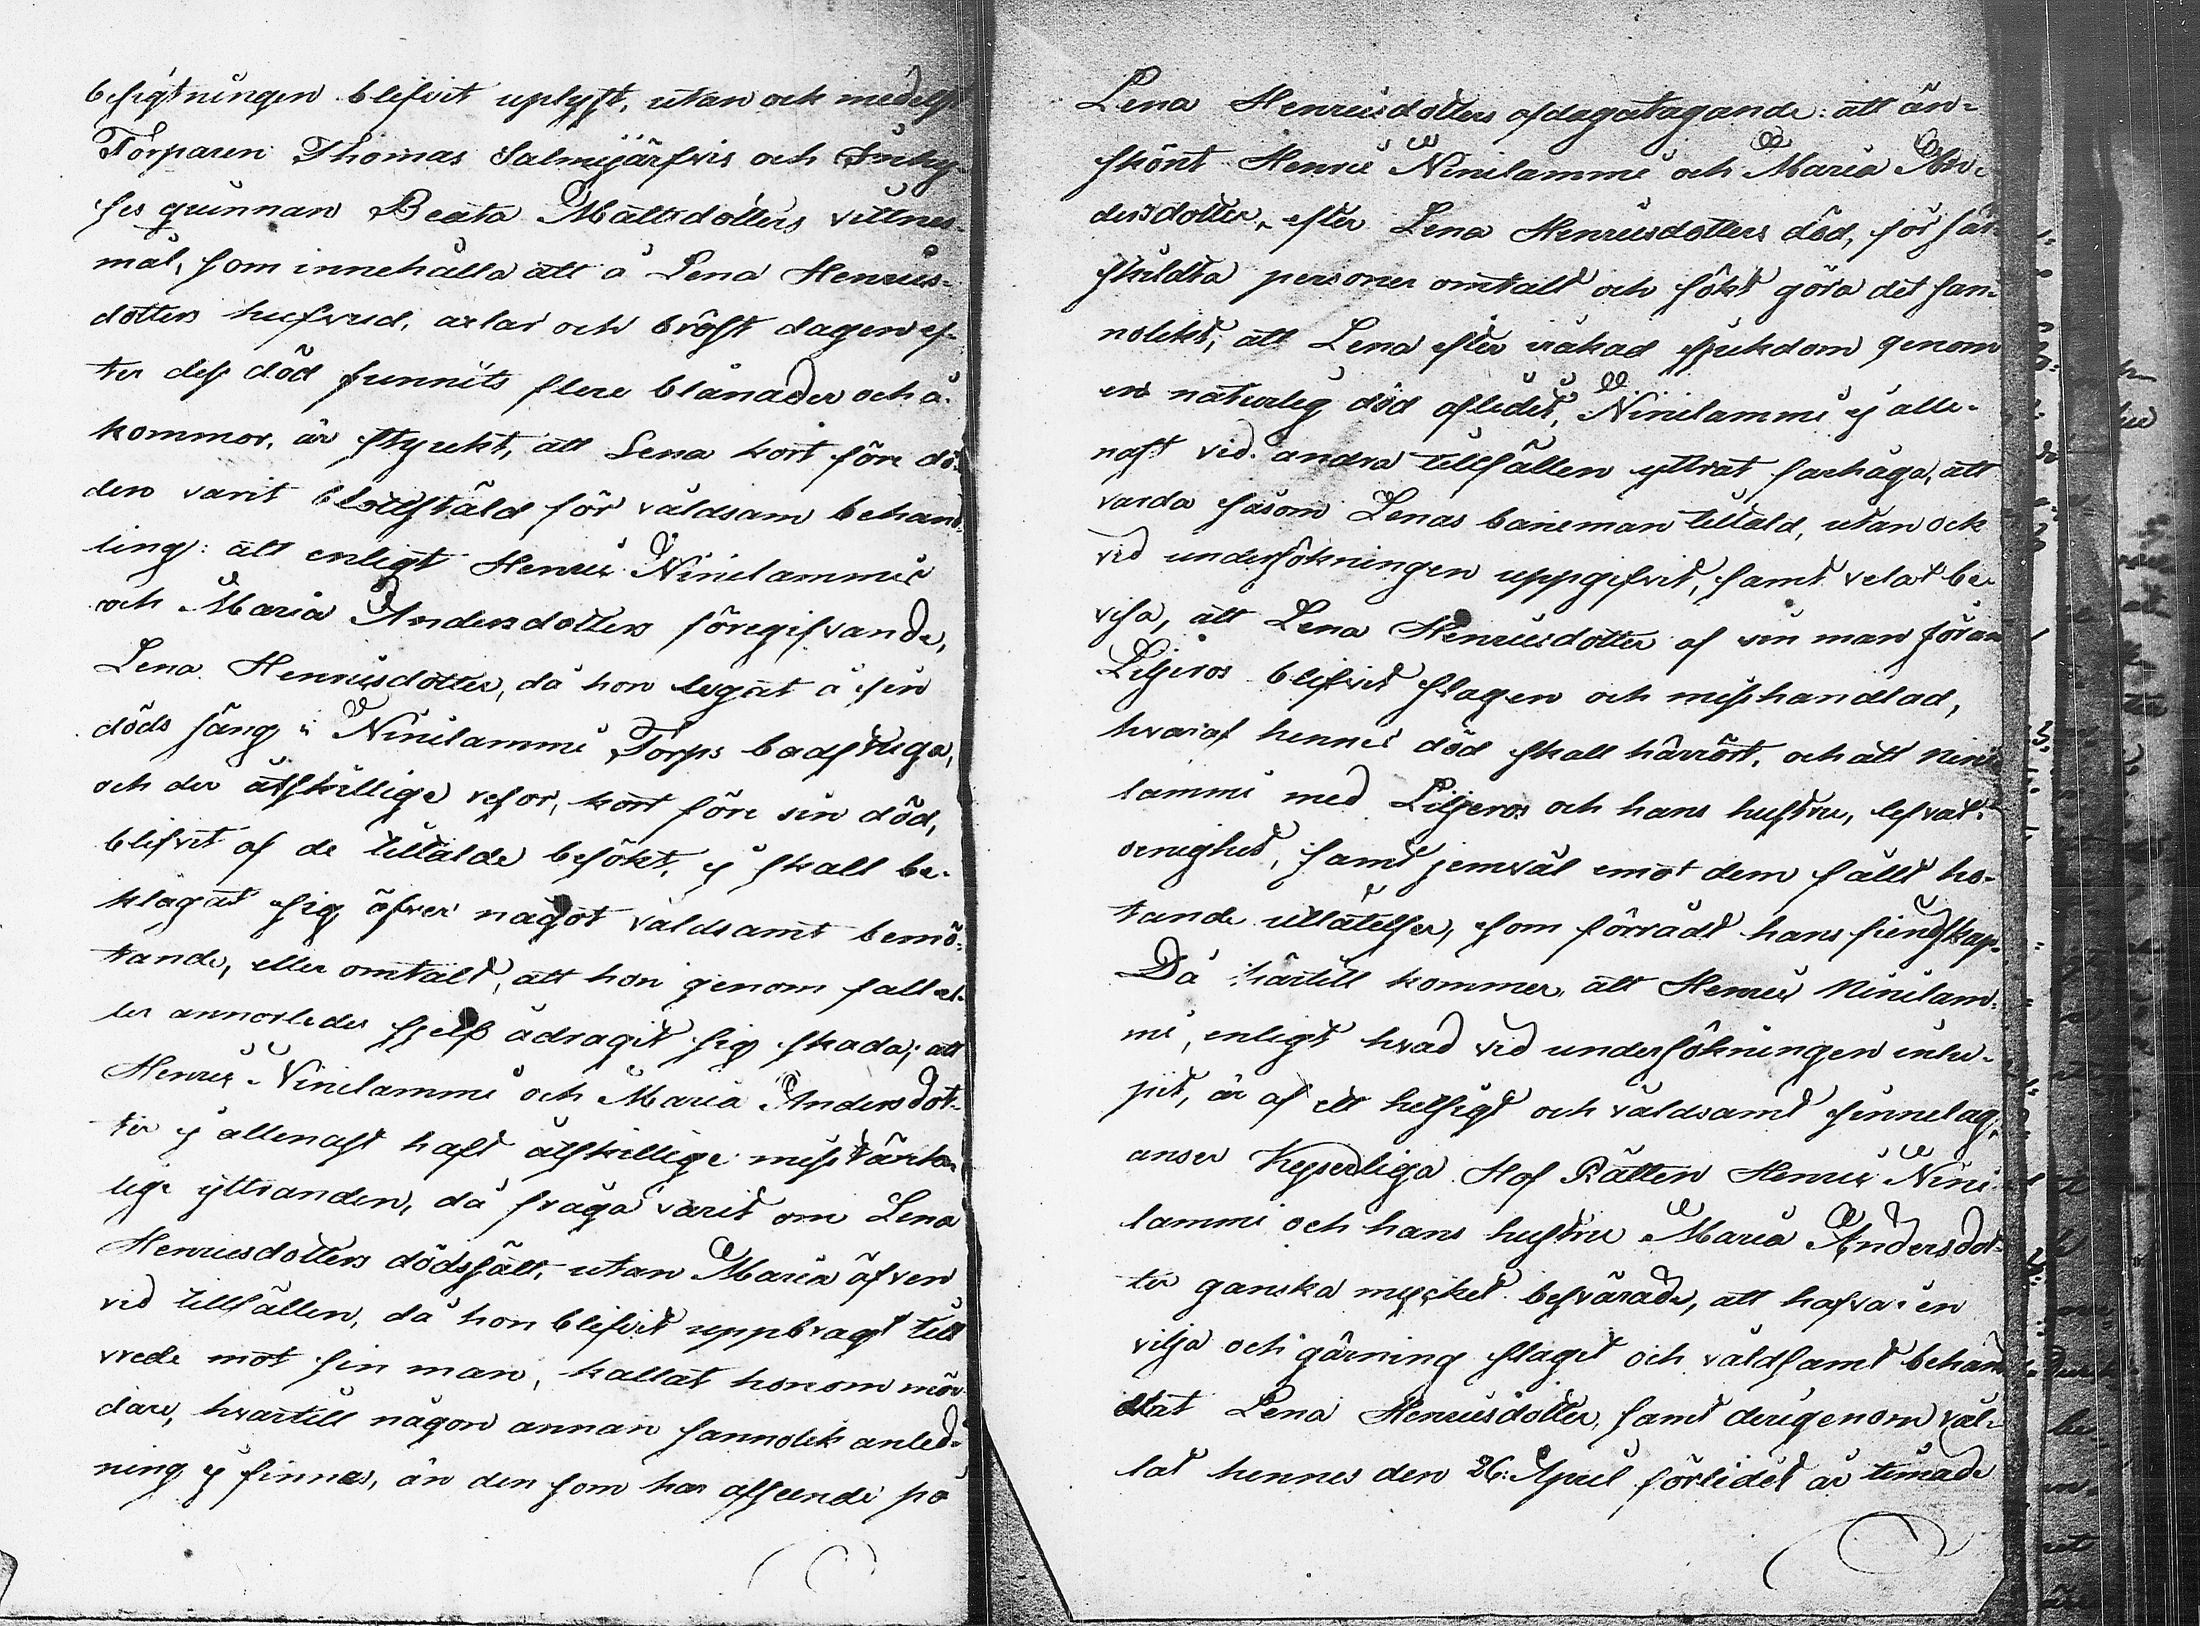 besigtningen blifvit uplyst, utan ock medelst
Torparen Thomas Salmijärfvis och Inhy-
ses qvinnan Beata Mattsdotters vittnes-
mål, som innehålla att å Lena Henrics-
dotters hufvud, axlar och bröst dagen ef-
ter dess död funnits flere blånader och å-
kommor, är styrckt, att Lena kort före dö-
den varit blottstäld för våldsam behand-
ling: att enligt Henric Niinilammis
och Maria Andersdotters föregifvande,
Lena Henricsdotter, då hon legat å sin
döds säng i Niinilammi Torps badstuga,
och der åtskillige resor, kort före sin död,
blifvit af de tilltalde besökt, ej skall be-
klagat sig öfver något våldsamt bemö-
tande, eller omtalt, att hon genom fall el-
ler annorledes sjelf ådragit sig skada; att
Henric Niinilammi och Maria Andersdot-
ter ej allenast haft åtskillige misstänke-
lige yttranden, då fråga varit om Lena
Henricsdotters dödssätt, utan Maria äfven
vid tillfällen, då hon blifvit uppbragt till
vrede mot sin man, kallat honom mör-
dare, hvartill någon annan sannolik anled-
ning ej finnes, än den som har afseende på
Lena Henricsdotters afdagatagande: att än-
skönt Henric Niinilammi och Maria An-
dersdotter, efter Lena Henricsdotters död, för sär-
skildta personer omtalt och sökt göra det san-
nolikt, att Lena efter iråkad sjukdom genom
en naturlig död aflidit, Niinilammi ej alle-
nast vid andra tillfällen yttrat farhåga, att
varda såsom Lenas baneman tilltald, utan ock
vid undersökningen uppgifvit, samt velat be-
visa, att Lena Henricsdotter af sin man Johan
Liljeros blifvit slagen och misshandlad,
hvaraf hennes död skall härrört, och att Niini-
lammi med Liljeros och hans hustru, lefvat i
oenighet, samt jemväl emot dem fällt ho-
tande utlåtelser, som förrådt hans fiendskap.
Då härtill kommer, att Henric Niinilam-
mi, enligt hvad vid undersökningen inlu-
pit, är af ett hetsigt och våldsamt sinnelag,
anser Kejserliga Hof Rätten Henric Niini-
lammi och hans hustru Maria Andersdot-
ter ganska mycket besvärade, att hafva i en
vilja och gärning slagit och våldsamt behan-
dlat Lena Henricsdotter, samt derigenom vål-
lat hennes den 26 April förlidet år timade